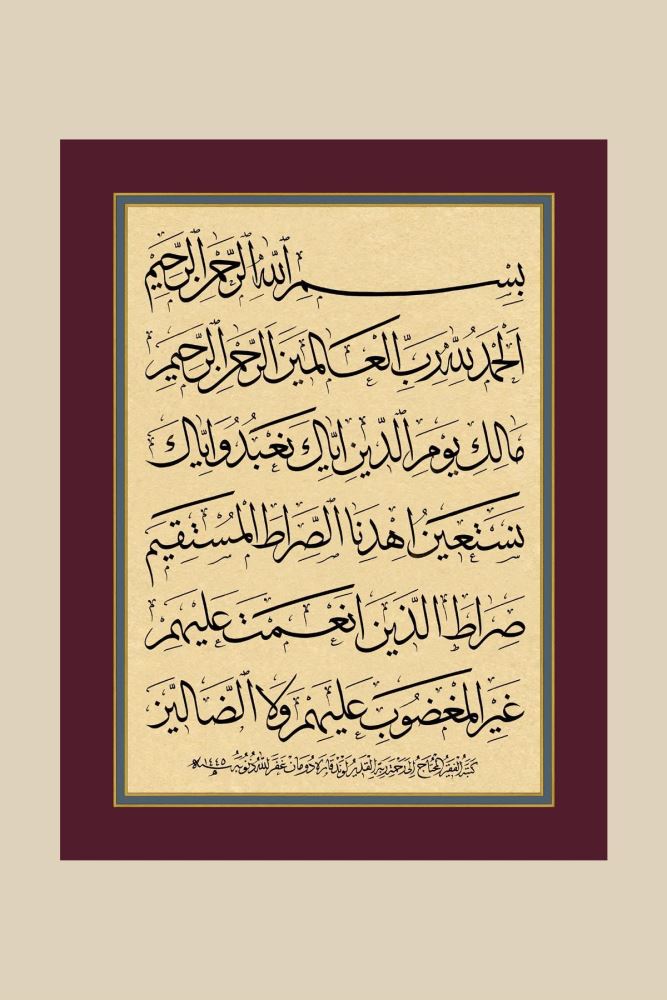 بِسْمِ اللّٰهِ الرَّحْمٰنِ الرَّحِيْمِ
اَلْحَمْدُ لِلّٰهِ رَبِّ الْعَالَمِينَ الرَّحْمٰنِ الرَّحِيمِ
مَالِكِ يَوْمِ الدِّينِ اِيَّاكَ نَعْبُدُ وَاِيَّاكَ
نَسْتَعِينُ اِهْدِنَا الصِّرَاطَ الْمُسْتَقِيمَ
صِرَاطَ الَّذِينَ اَنْعَمْتَ عَلَيْهِمْ
غَيْرِ الْمَغْضُوبِ عَلَيْهِمْ وَلَا الضَّالِّينَ
كتبه الفقير المحتاج الى رحمة ربه القدير لوند قاره دومان غفر الله ذنوبه سنه ١٤٤٥